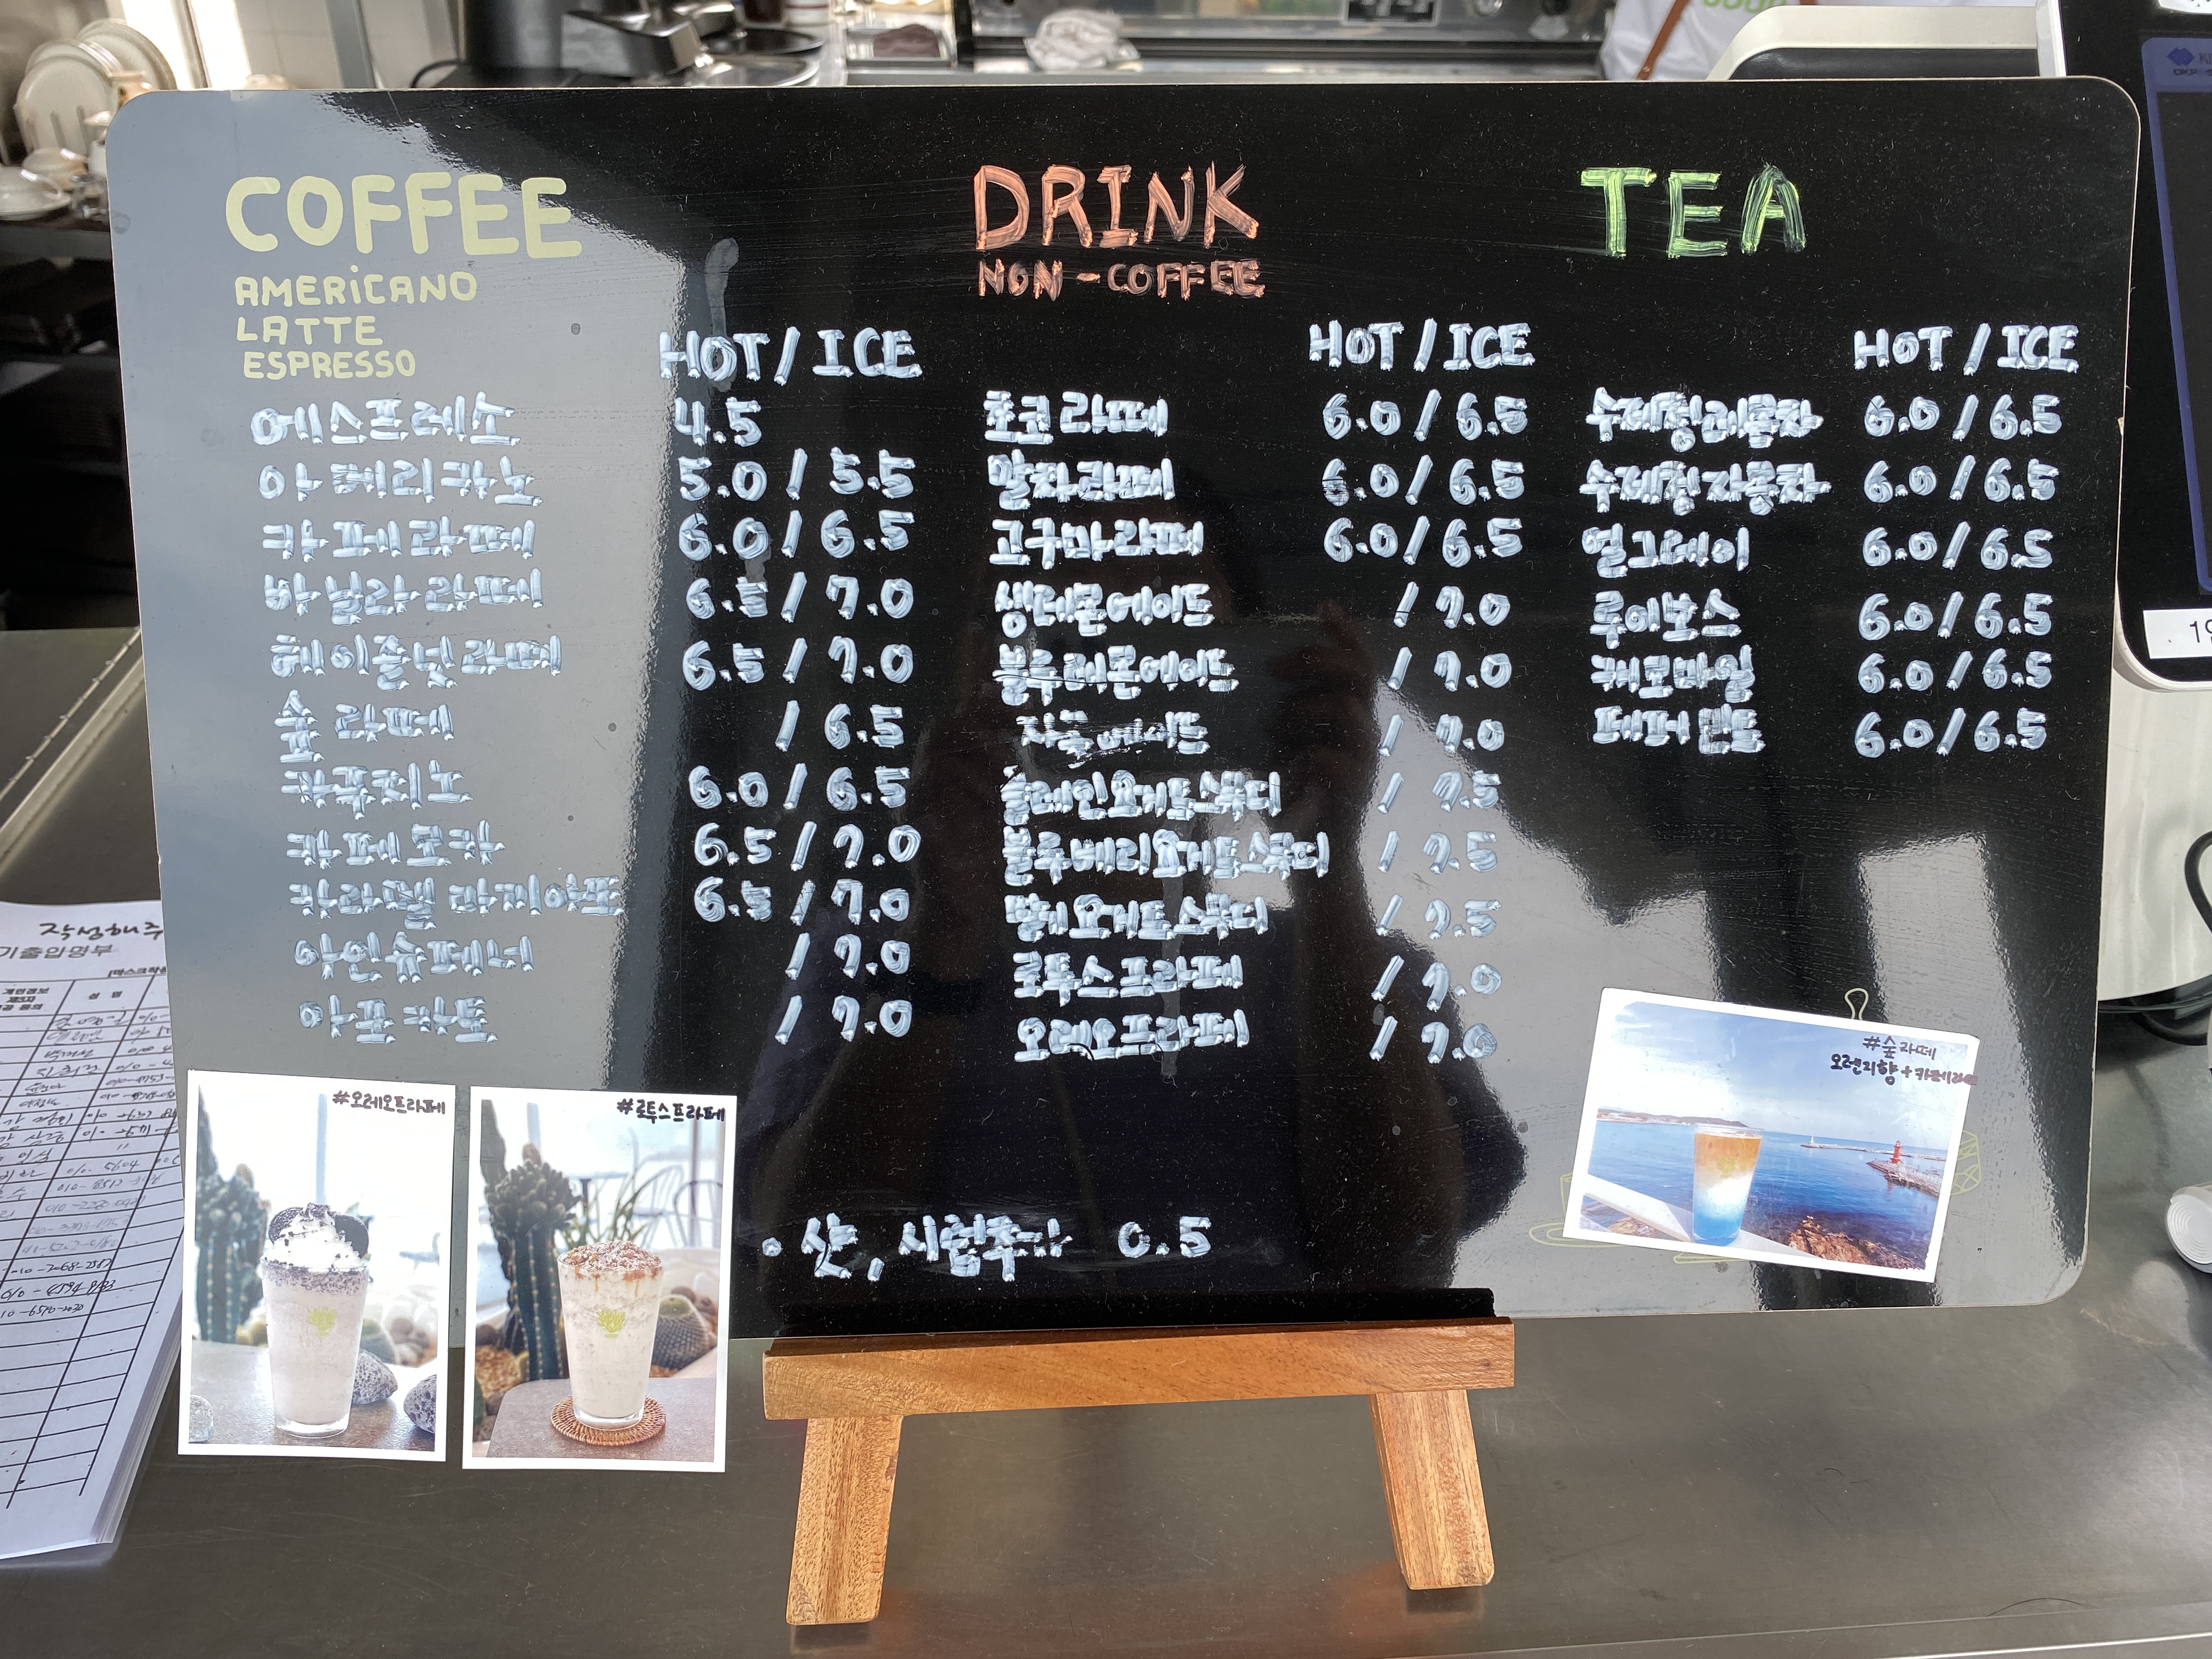 COFFEE
AMERICANO
LATTE
ESPRESSO
HOT / ICE
에스프레소 4.5
아메리카노 5.0 / 5.5
카페라떼 6.0 / 6.5
바닐라라떼 6.5 / 7.0
헤이즐넛라떼 6.5 / 7.0
숲 라떼 / 6.5
카푸치노 6.0 / 6.5
카페모카 6.5 / 7.0
카라멜 마끼아또 6.5 / 7.0
아인슈페너 / 7.0
아포카토 / 7.0
DRINK
NON-COFFEE
HOT / ICE
초코라떼 6.0 / 6.5
말차라떼 6.0 / 6.5
고구마라떼 6.0 / 6.5
생레몬에이드 / 7.0
블루레몬에이드 / 7.0
자몽에이드 / 7.0
플레인요거트스무디 / 7.5
블루베리요거트스무디 / 7.5
딸기요거트스무디 / 7.5
로투스프라페 / 7.0
오레오프라페 / 7.0
TEA
HOT / ICE
수제청레몬차 6.0 / 6.5
수제청자몽차 6.0 / 6.5
얼그레이 6.0 / 6.5
루이보스 6.0 / 6.5
캐모마일 6.0 / 6.5
페퍼민트 6.0 / 6.5
· 샷, 시럽추가 0.5
#오레오프라페
#로투스프라페
#숲라떼
오렌지향+카페라떼
작성해주
기출입명부